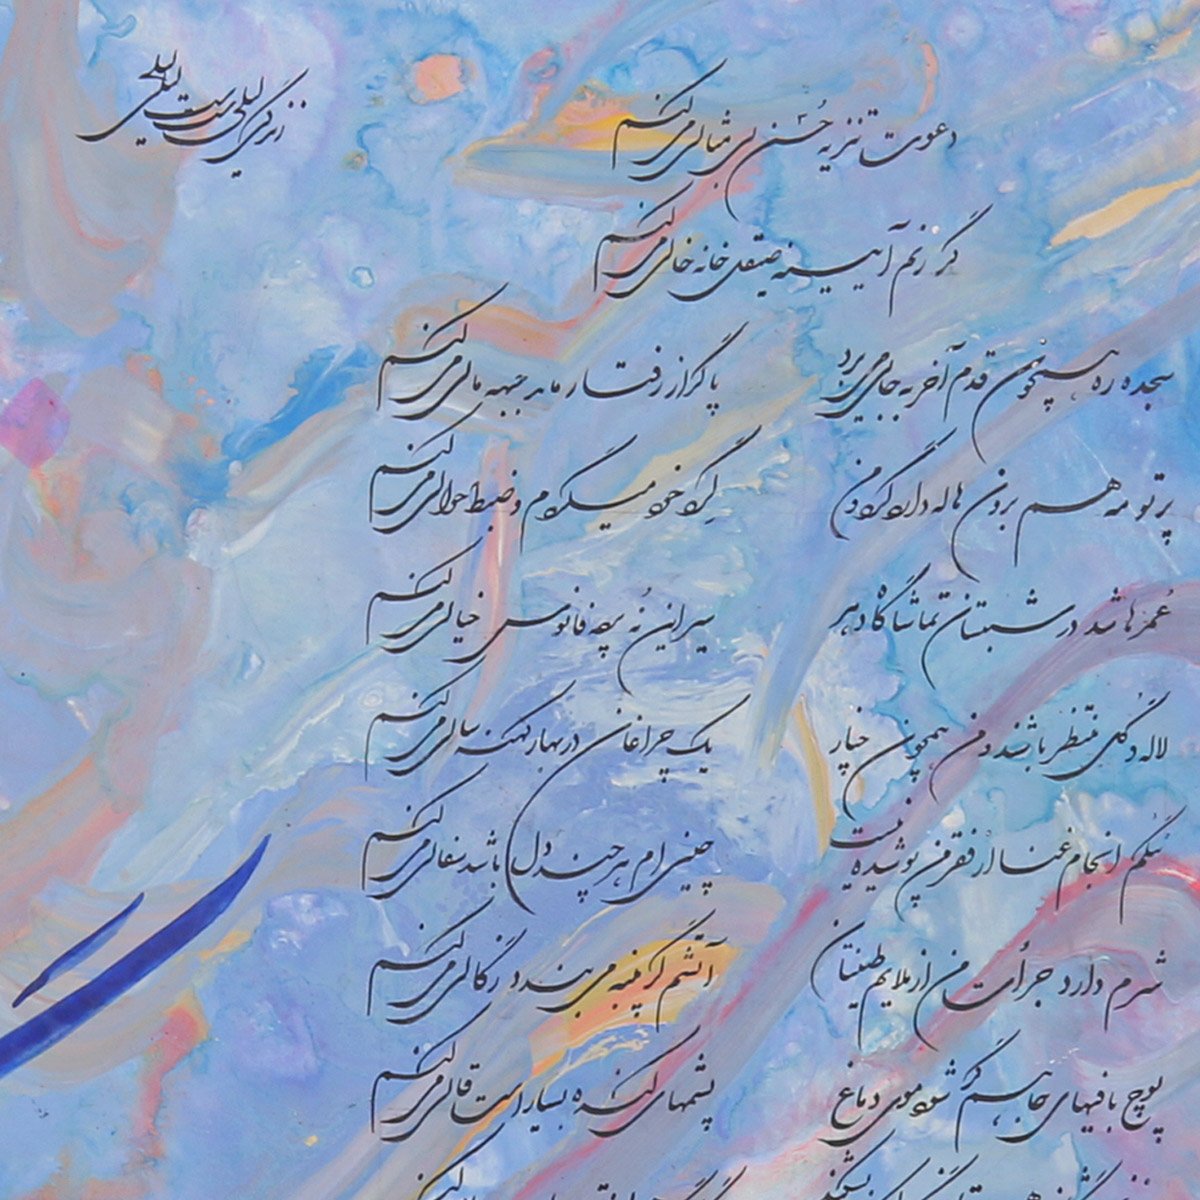 زندگی لیلی ست لیلی
دعوت تنزیه حُسن بی مثالی می کنم
گر زنم آیینه صیقل خانه خالی می کنم
سجده ره همچون قدم آخر به جایی می برد
پا گر از رفتار ماند جبهه مالی می کنم
پرتو مه هم برون هاله دارد گرد و من
گِرد خود میگردم و ضبط حوالی می کنم
عُمرها شد در شبستان تماشاگاه دهر
سیر این نُه فانوس خیالی می کنم
لاله و گُل منتظر باشند و من همچون چنار
یک چراغان در بهار کهنه سالی می کنم
انجام غنا از فقر من پوشیده نیست
چینی ام هر چند دل باشد سفالی می کنم
شرم دارد جرأت من از ملایم طینتان
آتشم گر پنبه می بیند زگالی می کنم
پوچ بافیهای جاهم گر شود موی دماغ
پشمهای کنده بسیار است قالی می کنم